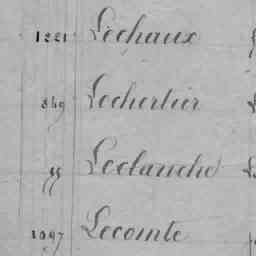 1221 Léchaux
849 Lechertier
Leclanché
1097 Lecomte